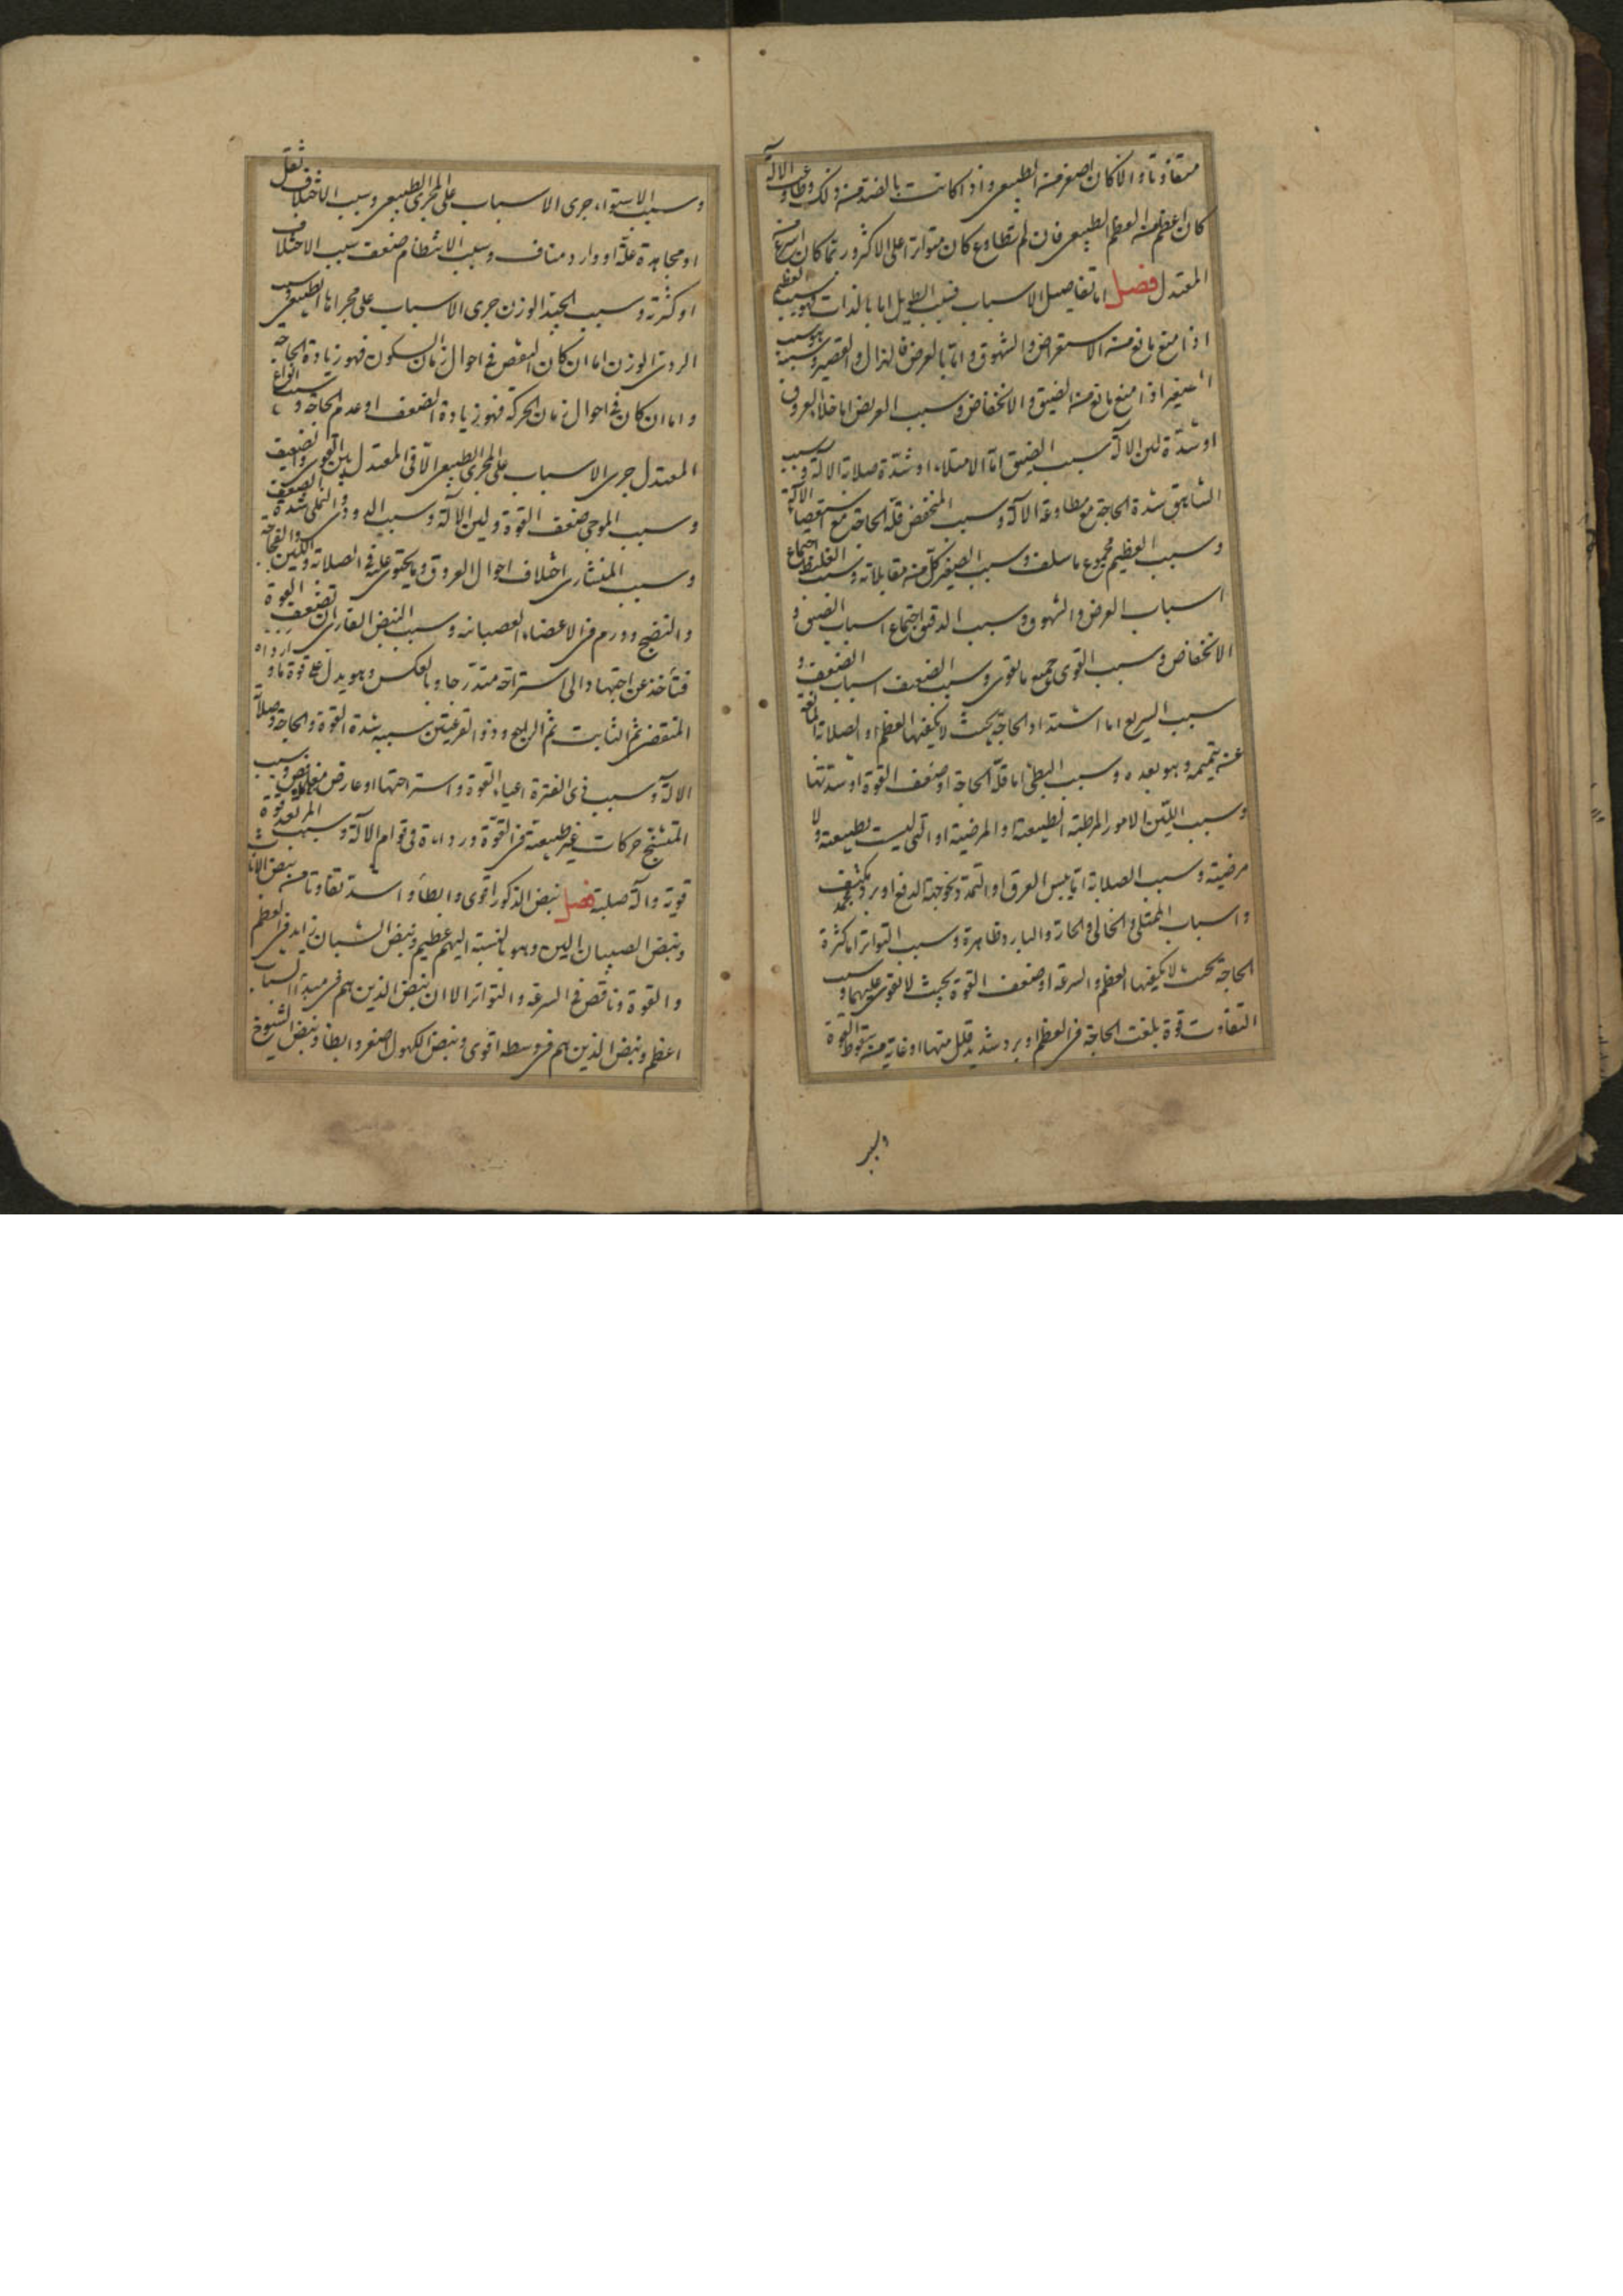 متفاوتا و الا كان اصغر من الطبيعى و اذا كانت بالضد من ذلك و طاوعت الآلة
كان اعظم من العظم الطبيعى فان لم تطاوع كان متواترا على الاكثر و ربما كان اسرع من
المعتدل فصل اما تفاصيل الاسباب فسبب الطويل اما بالذات فهو سبب العظيم
اذا منع مانع من الاستعراض و الشهوق و اما بالعرض فالهزال و القصير و سببه هو سبب
الصغير اذا منع مانع من الضيق و الانخفاض و سبب العريض اما خلأ العروق
او شدة لين الآلة سبب الضيق اما الامتلاء او شدة صلابة الآلة و سبب
الشاهق شدة الحاجة مع مطاوعة الآلة و سبب المنخفض قلة الحاجة مع استعصاء الآلة
و سبب العظيم مجموع ما سلف و سبب الصغير كل من مقابلاته و سبب الغليظ اجتماع
اسباب العرض و الشهوق و سبب الدقيق اجتماع اسباب الضيق و
الانخفاض و سبب القوى جميع ما يقوى و سبب الضعيف اسباب الضعف و
سبب السريع اما اشتداد الحاجة بحيث لا يكفيها العظم او الصلابة المانعة
عن تتميمه و هو بعده و سبب البطئ اما قلة الحاجة او ضعف القوة او شدتها
و سبب اللين الامور المرطبة الطبيعية او المرضية او التى ليست بطبيعية و لا
مرضية و سبب الصلابة اما يبس العرق او التمدد نحو جهة الدفع او برد مكثف مجمد
و اسباب الممتلى و الخالى و الحار و البارد ظاهرة و سبب التواتر اما كثرة
الحاجة بحيث لا يكفيها العظم و السرعة او ضعف القوة بحيث لا تقوى عليهما و سبب
التفاوت قوة بلغت الحاجة فى العظم او برد شديد قلل منها او غاية من سقوط القوة
و سبب الاستواء جرى الاسباب على المجرى الطبيعى و سبب الاختلاف ثقل
او مجاهدة علة او وارد مناف و سبب الانتظام ضعف سبب الاختلاف
او كثرته و سبب الجيد الوزن جرى الاسباب على مجراها الطبيعى و سبب
الردى الوزن اما ان كان النقص فى احوال زمان السكون فهو زيادة الحاجة
و اما ان كان فى احوال زمان الحركة فهو زيادة الضعف او عدم الحاجة و سبب انواع
المعتدل جرى الاسباب على المجرى الطبيعى الا فى المعتدل بين القوى و الضعيف
و سبب الموجى ضعف القوة و لين الآلة و سبب الدودى و النملى شدة الضعف
و سبب المنشارى اختلاف احوال العروق و ما يحتوى عليه فى الصلابة و اللين و الفجاجة
و النضج و ورم فى الاعضاء العصبانية و سبب النبض الفارى ان تضعف القوة
فتأخذ عن اجتهاد الى استراحة متدرجا و بالعكس و هو يدل على قوة ما و
المنقضى ثم الثابت ثم الراجع و ذو القرعتين سببه شدة القوة و الحاجة و صلابة
الآلة و سبب ذى الفترة اعياء القوة و استراحتها او عارض و سبب
المتشنج حركات غير طبيعية فى القوة و رداءة فى قوام الآلة و سبب المرتعد قوة
قوية و آلة صلبة فصل نبض الذكور اقوى و ابطأ و اشد تفاوتا من نبض الاناث
و نبض الصبيان الين و هو بالنسبة اليهم عظيم و نبض الشبان زايد فى العظم
و القوة و ناقص فى السرعة و التواتر الا ان نبض الذين هم فى مبدأ الشباب
اعظم و نبض الذين هم فى وسطه اقوى و نبض الكهول اصغر و ابطأ و نبض الشيوخ